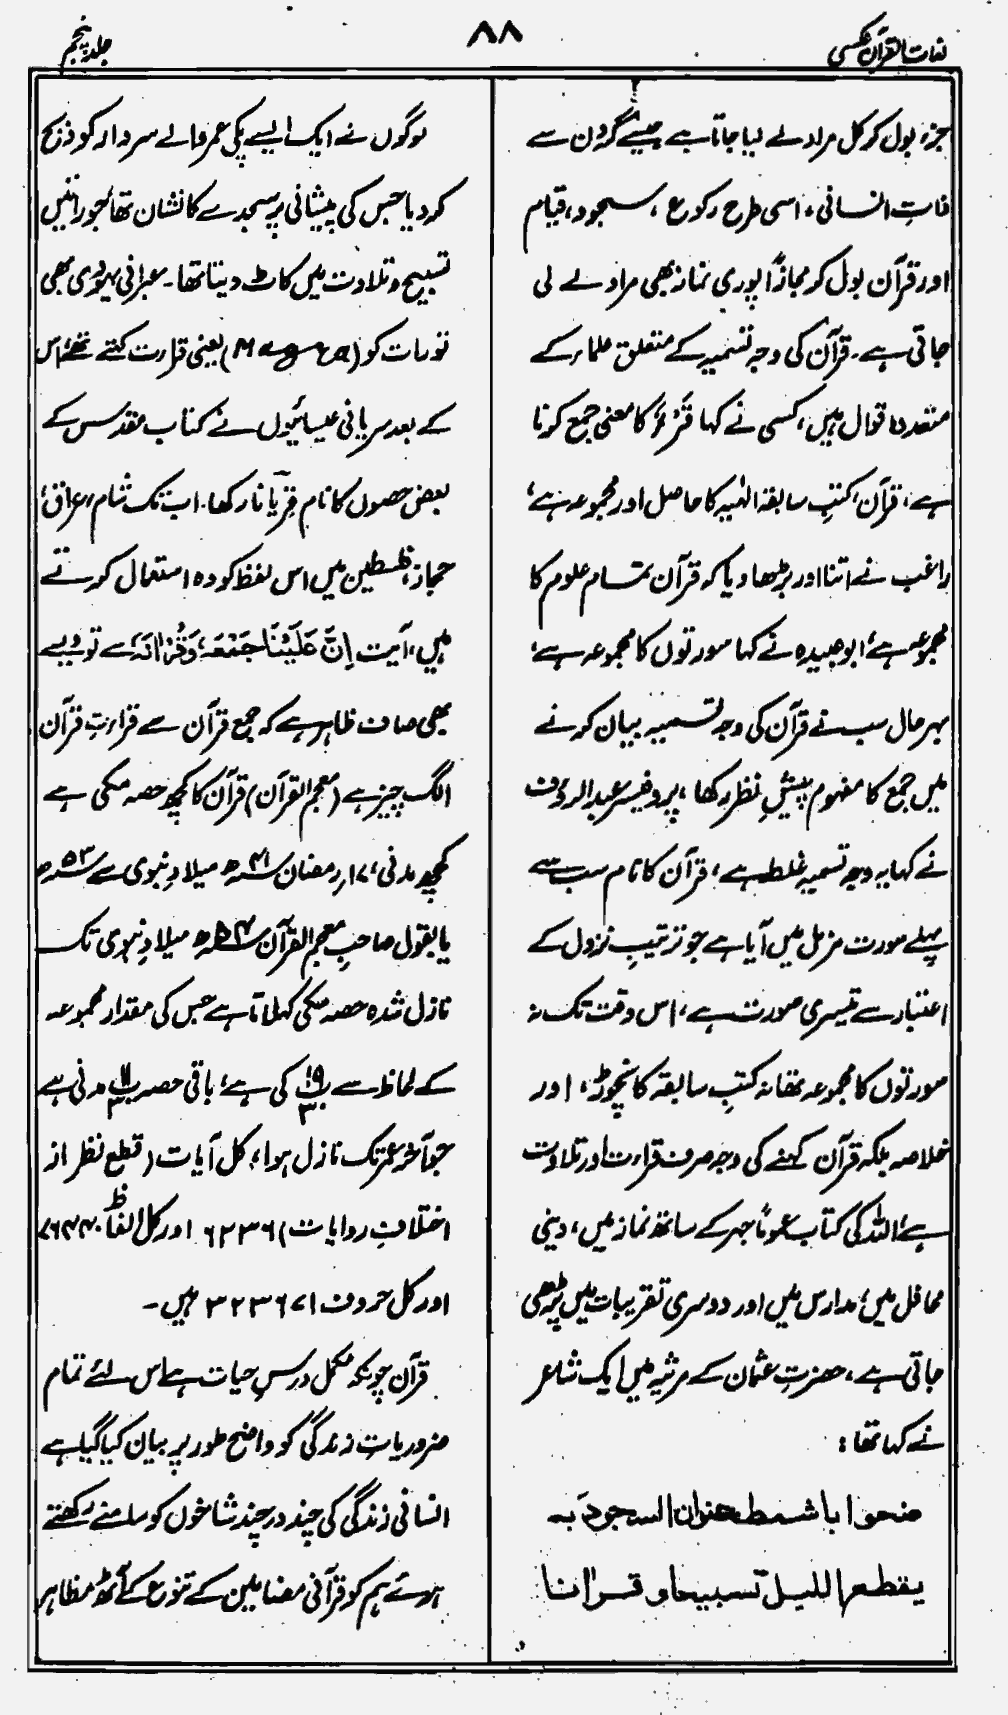 لغات القرآن عکسی
۸۸
جلد پنجم
جزء بول کر کل مراد لے لیا جاتا ہے جیسے گردن سے
ذاتِ انسانی، اسی طرح رکوع، سجود، قیام
اور قرآن بول کر مجازاً پوری نماز بھی مراد لے لی
جاتی ہے۔ قرآن کی وجہ تسمیہ کے متعلق علماء کے
متعدد اقوال ہیں، کسی نے کہا قَرْءٌ کا معنی جمع کرنا
ہے، قرآن، کتبِ سابقہ الٰہیہ کا حاصل اور مجموعہ ہے،
راغب نے اتنا اور بڑھا دیا کہ قرآن تمام علوم کا
مجموعہ ہے، ابو عبیدہ نے کہا سورتوں کا مجموعہ ہے،
بہر حال سب نے قرآن کی وجہ تسمیہ بیان کرنے
میں جمع کا مفہوم پیشِ نظر رکھا، پروفیسر عبدالرؤف
نے کہا یہ وجہ تسمیہ غلط ہے، قرآن کا نام سب سے
پہلے سورت مزمل میں آیا ہے جو ترتیبِ نزول کے
اعتبار سے تیسری سورت ہے، اس وقت تک نہ
سورتوں کا مجموعہ تھا نہ کتبِ سابقہ کا نچوڑ، اور
خلاصہ بلکہ قرآن کہنے کی وجہ صرف قراءت اور تلاوت
ہے، اللہ کی کتاب عموماً جہر کے ساتھ نماز میں، دینی
محافل میں، مدارس میں اور دوسری تقریبات میں پڑھی
جاتی ہے، حضرتِ عثمان کے مرثیہ میں ایک شاعر
نے کہا تھا:
ضحوا باشمط عنوان السجود بہ
یقطع اللیل تسبیحا و قرانا
لوگوں نے ایک ایسے پکی عمر والے سردار کو ذبح
کر دیا جس کی پیشانی پر سجدے کا نشان تھا، جو راتیں
تسبیح و تلاوت میں کاٹ دیتا تھا۔ عبرانی یہودی بھی
تورات کو (Megra) یعنی قراءت کہتے تھے، اس
کے بعد سریانی عیسائیوں نے کتاب مقدس کے
بعض حصوں کا نام قِریانا رکھا۔ اب تک شام، عراق،
حجاز، فلسطین میں اس لفظ کو وہ استعمال کرتے
ہیں، آیت اِنَّ عَلَیْنَا جَمْعَهٗ وَقُرْاٰنَهٗ سے تو ویسے
بھی صاف ظاہر ہے کہ جمع قرآن سے قراءتِ قرآن
الگ چیز ہے (معجم القرآن) قرآن کا کچھ حصہ مکی ہے
کچھ مدنی، ۱۷ رمضان ۴۱ھ میلادِ نبوی سے ۵۳ھ
یا بقول صاحبِ معجم القرآن ۵۴ھ میلادِ نبوی تک
نازل شدہ حصہ مکی کہلاتا ہے جس کی مقدار مجموعہ
کے لحاظ سے ۱۹/۳۰ کی ہے، باقی حصہ ۱۱/۳۰ مدنی ہے
جو آخر عمر تک نازل ہوا، کل آیات (قطع نظر از
اختلافِ روایات) ۶۲۳۶ اور کل الفاظ ۷۶۴۴۰
اور کل حروف ۳۲۳۶۷۱ ہیں۔
قرآن چونکہ مکمل درسِ حیات ہے اس لئے تمام
ضروریاتِ زندگی کو واضح طور پر بیان کیا گیا ہے
انسانی زندگی کی چند در چند شاخوں کو سامنے رکھتے
ہوئے ہم کو قرآنی مضامین کے تنوع کے آٹھ مظاہر